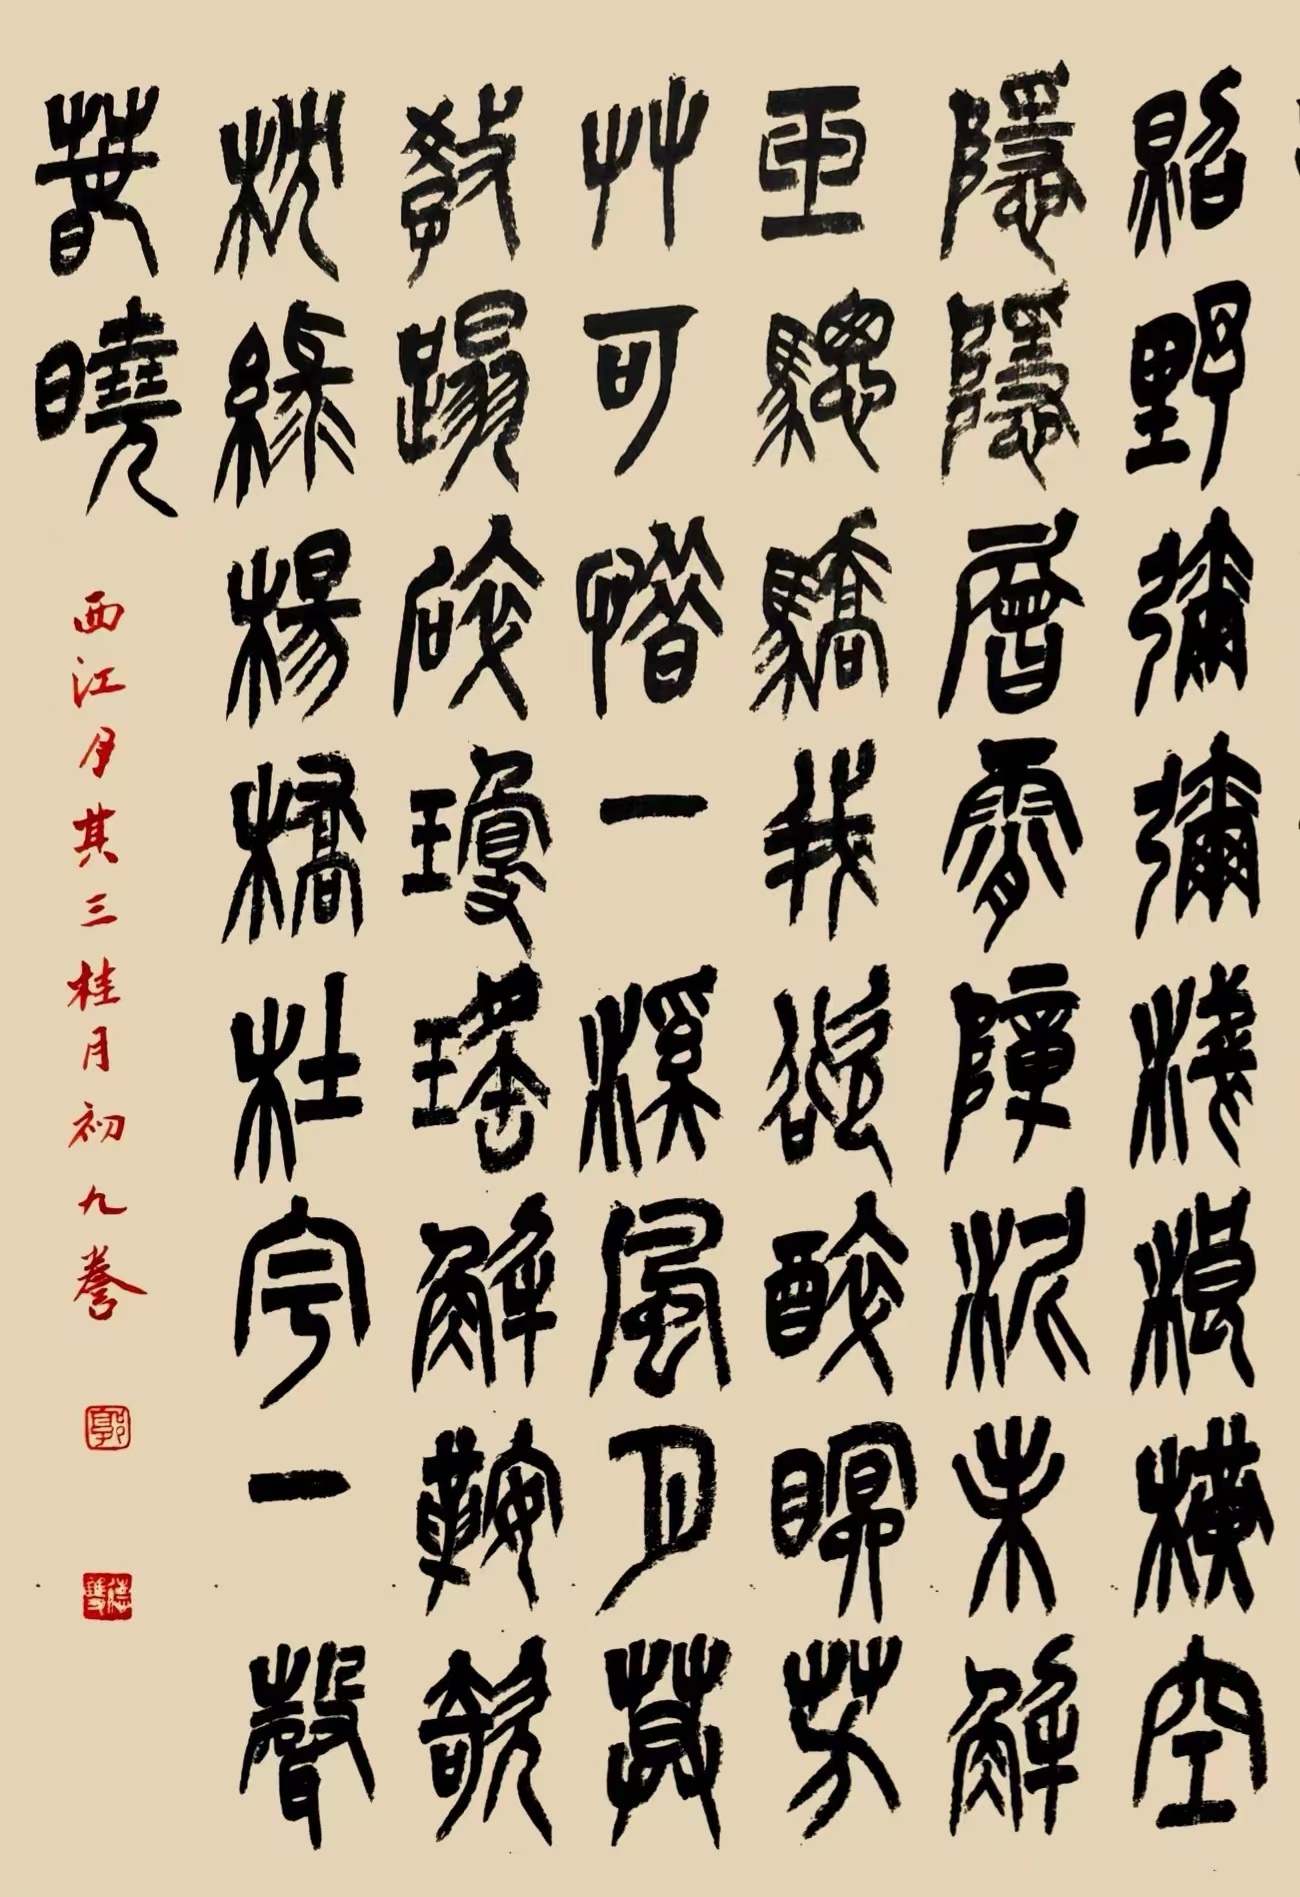 照野彌彌淺浪橫空
隱隱層霄障泥未解
玉驄驕我欲醉眠芳
艸可惜一溪風月莫
教蹋破瓊瑤解鞍欹
枕綠楊橋杜宇一聲
春曉
西江月其三桂月初九謄
郭